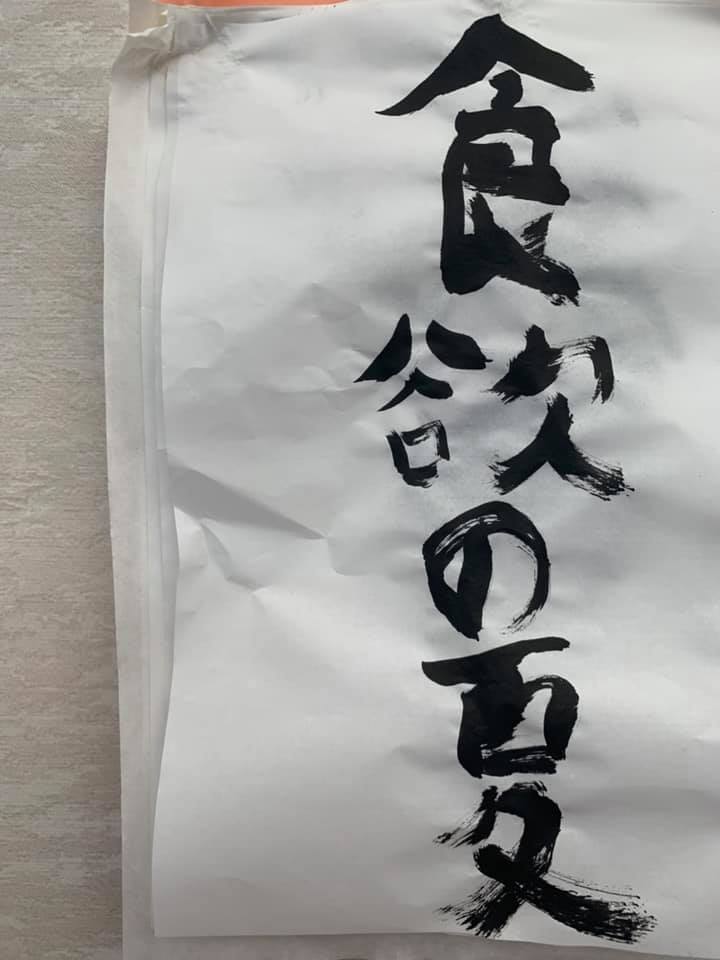 食欲の夏